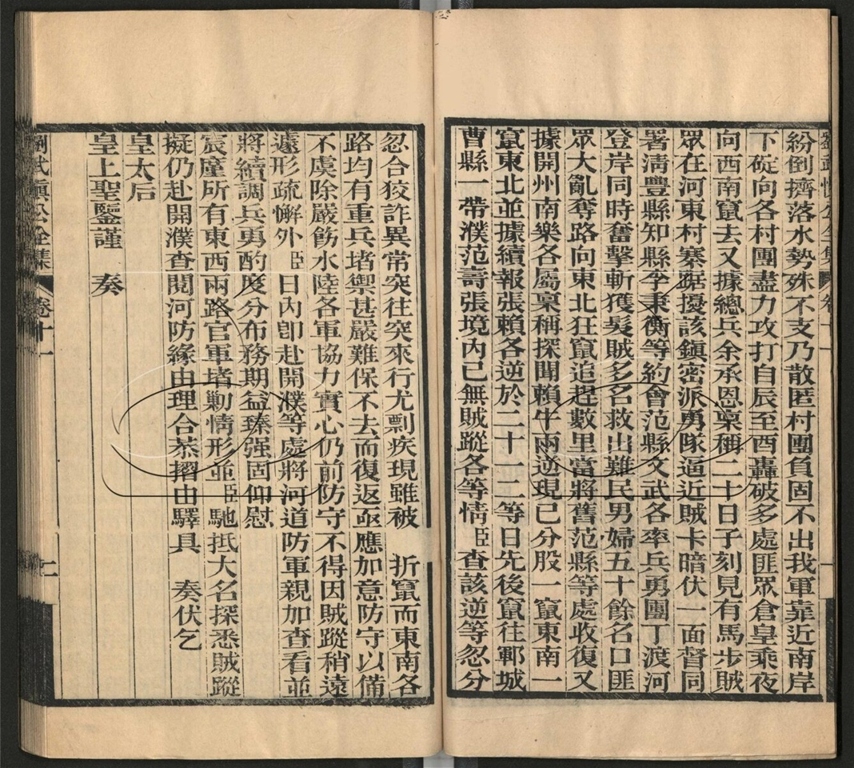 紛倒擠落水勢殊不支乃散匿村團負固不出我軍靠近南岸
下碇向各村團盡力攻打自辰至酉轟破多處匪眾倉皇乘夜
向西南竄去又據總兵余承恩稟稱二十日子刻見有馬步賊
眾在河東村寨踞擾該鎮密派勇隊逼近賊卡暗伏一面督同
署清豐縣知縣李秉衡等約會范縣文武各率兵勇團丁渡河
登岸同時奮擊斬獲髮賊多名救出難民男婦五十餘名口匪
眾大亂奪路向東北狂竄追趕數里當將舊范縣等處收復又
據開州南樂各屬稟稱探聞賴牛兩逆現已分股一竄東南一
竄東北並據續報張賴各逆於二十一二等日先後竄往鄆城
曹縣一帶濮范壽張境內已無賊蹤各等情臣查該逆等忽分
劉武慎公全集 卷十一
忽合狡詐異常突往突來行尤剽疾現雖被 折竄而東南各
路均有重兵堵禦甚嚴難保不去而復返亟應加意防守以備
不虞除嚴飭水陸各軍協力實心仍前防守不得因賊蹤稍遠
遽形疏懈外臣日內卽赴開濮等處將河道防軍親加查看並
將續調兵勇酌度分布務期益臻强固仰慰
宸廑所有東西兩路官軍堵勦情形並臣馳抵大名探悉賊蹤
擬仍赴開濮查閱河防緣由理合恭摺由驛具 奏伏乞
皇太后
皇上聖鑒謹 奏
劉武慎公全集 卷十一